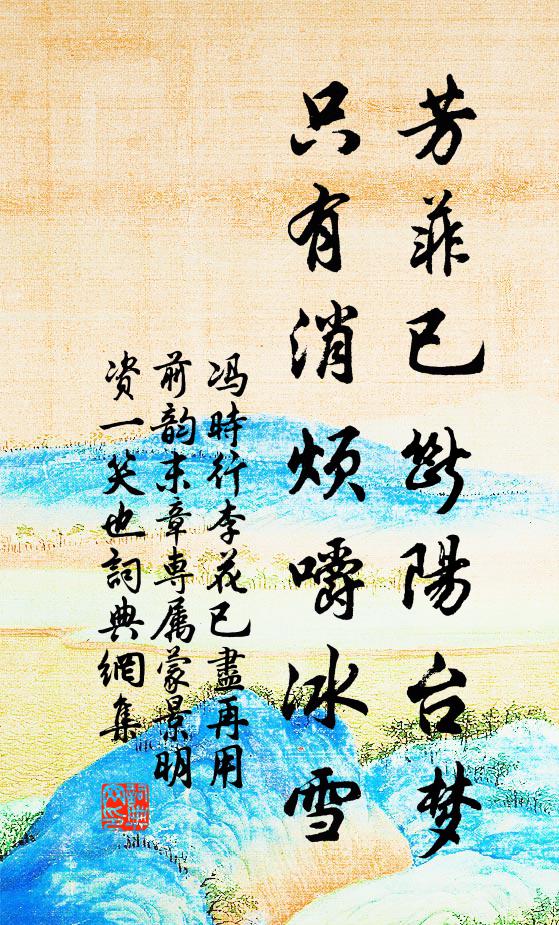 芳菲已断陽台梦
只有消煩嚼冰雪
冯時行李花已盡再用
前韵末章専属蒙景明
资一笑也詞典網集